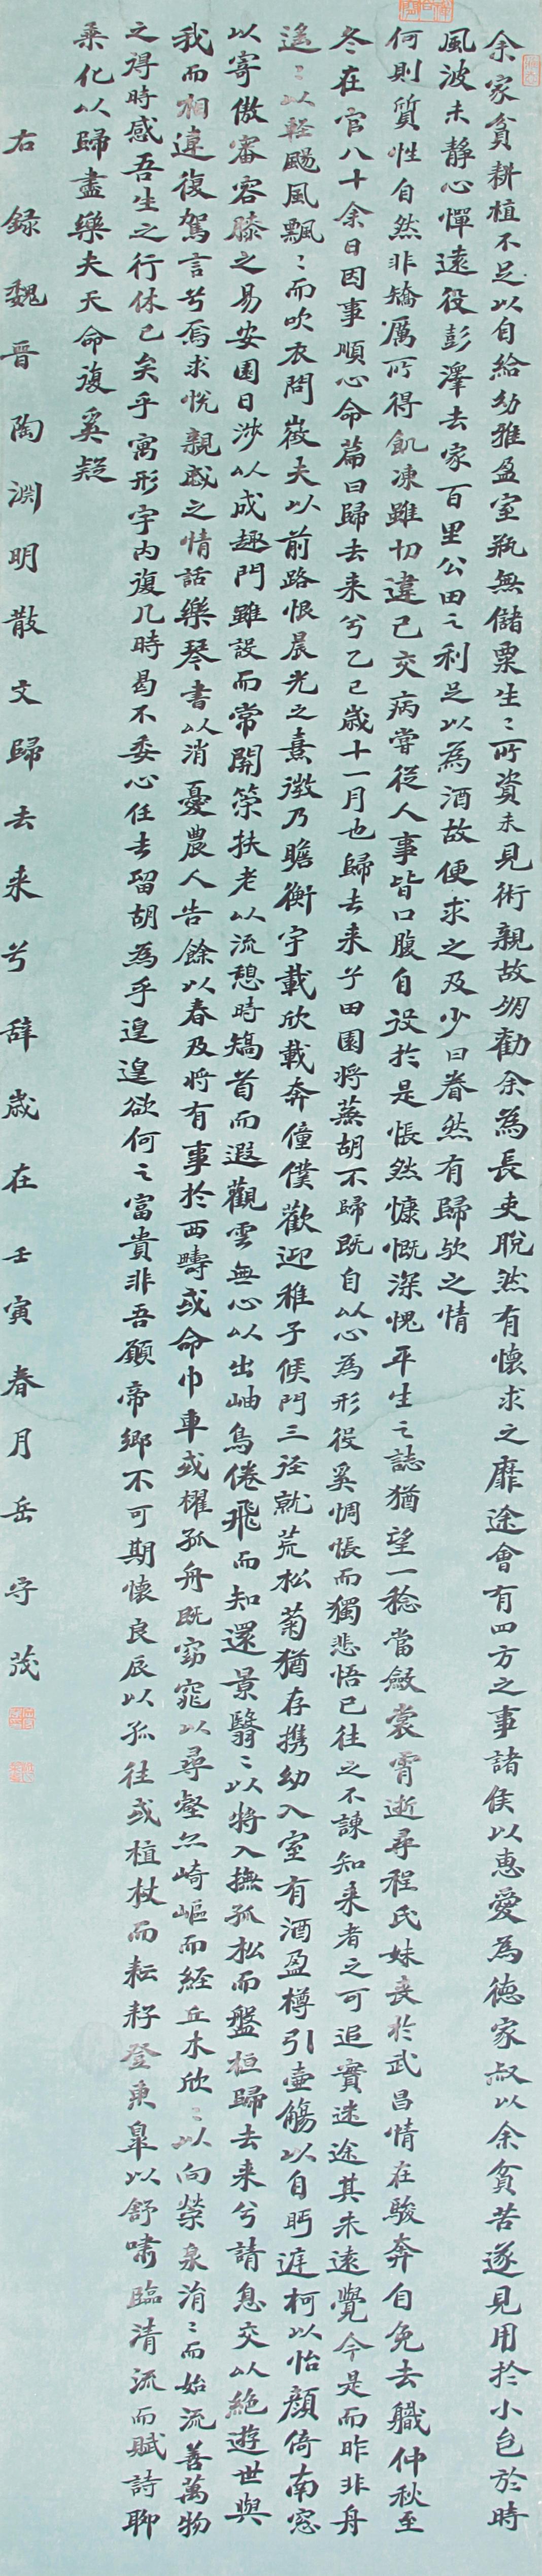 余家貧耕植不足以自給幼稚盈室瓶無儲粟生〻所資未見術親故朋勸余為長吏脫然有懷求之靡途會有四方之事諸侯以惠愛為德家叔以余貧苦遂見用於小邑於時
風波未靜心憚遠役彭澤去家百里公田之利足以為酒故便求之及少日眷然有歸歟之情
何則質性自然非矯厲所得飢凍雖切違己交病嘗從人事皆口腹自役於是悵然慷慨深愧平生之誌猶望一稔當斂裳宵逝尋程氏妹喪於武昌情在駿奔自免去職仲秋至
冬在官八十余日因事順心命篇曰歸去来兮乙巳歲十一月也歸去来兮田園将蕪胡不歸既自以心為形役奚惆悵而獨悲悟已往之不諫知来者之可追實迷途其未遠覺今是而昨非舟
遙〻以輕颺風飄〻而吹衣問徵夫以前路恨晨光之熹微乃瞻衡宇載欣載奔僮僕歡迎稚子候門三徑就荒松菊猶存携幼入室有酒盈樽引壺觴以自眄庭柯以怡顏倚南窓
以寄傲審容膝之易安園日涉以成趣門雖設而常關策扶老以流憩時矯首而遐觀雲無心以出岫鳥倦飛而知還景翳〻以将入撫孤松而盤桓歸去来兮請息交以絕遊世與
我而相違復駕言兮焉求悅親戚之情話樂琴書以消憂農人告餘以春及将有事於西疇或命巾車或櫂孤舟既窈窕以尋壑亦崎嶇而経丘木欣〻以向榮泉涓〻而始流善萬物
之得時感吾生之行休已矣乎寓形宇内復几時曷不委心任去留胡為乎遑遑欲何之富貴非吾願帝鄉不可期懷良辰以孤往或植杖而耘耔登東皐以舒嘯臨清流而賦詩聊
乘化以歸盡樂夫天命復奚疑
右錄魏晋陶淵明散文歸去来兮辞歲在壬寅春月岳守茂